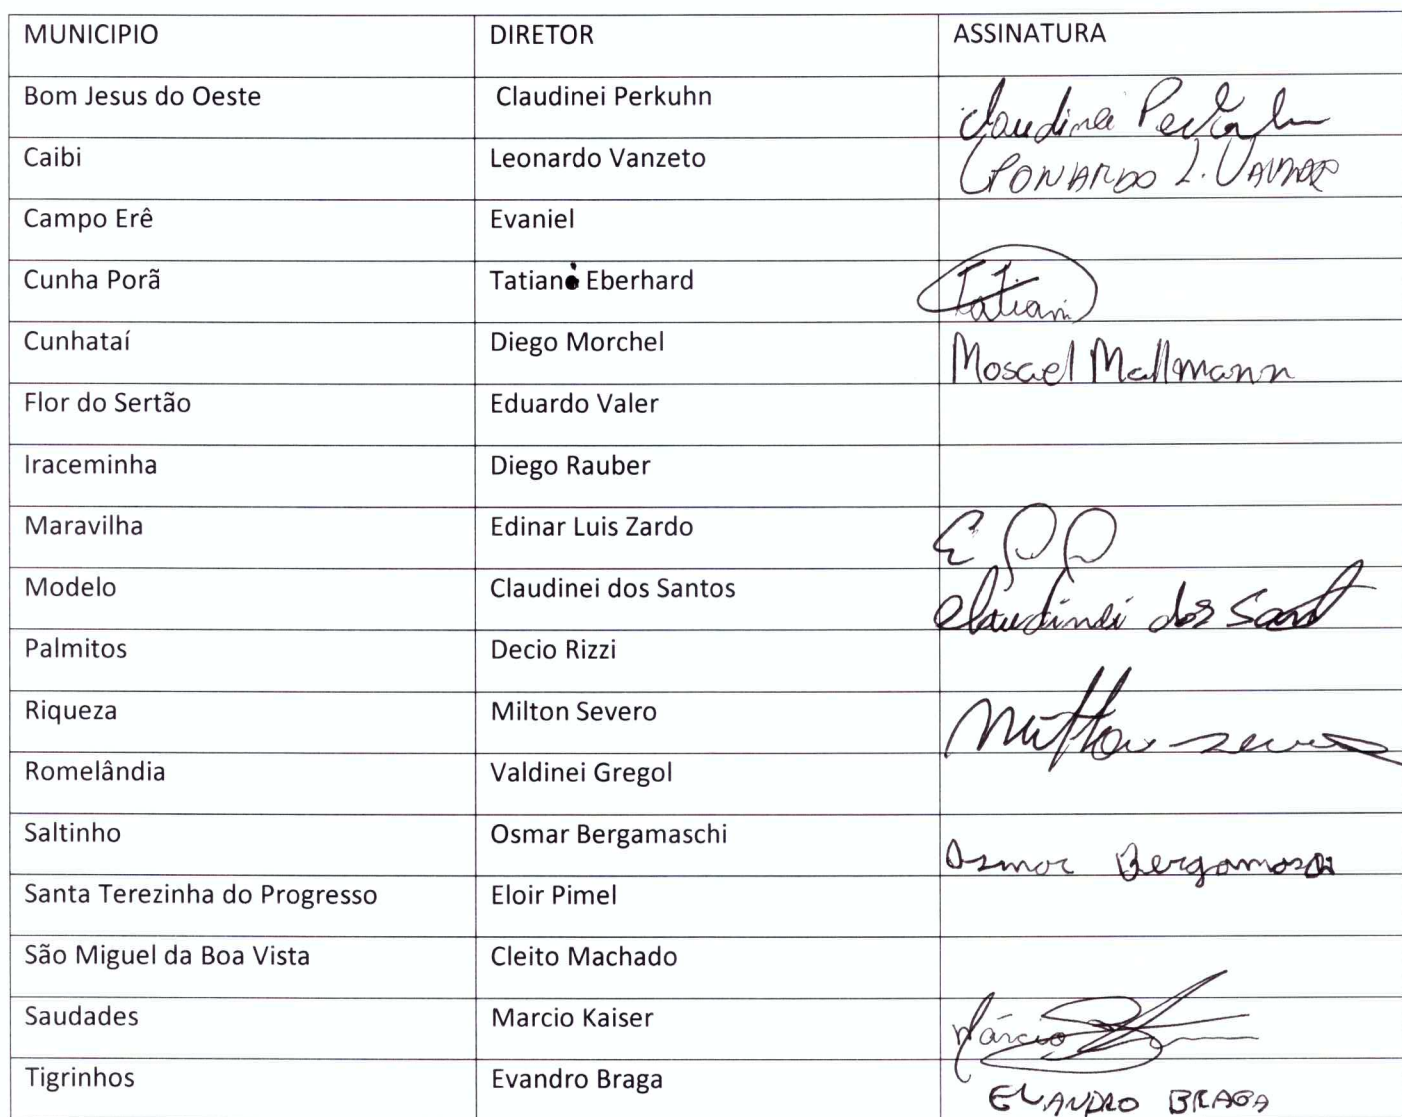 MUNICIPIO DIRETOR ASSINATURA
Bom Jesus do Oeste Claudinei Perkuhn Claudinei Perkuhn
Caibi Leonardo Vanzeto LEONARDO L.
Campo Erê Evaniel
Cunha Porã Tatiani Eberhard Tatiani
Cunhataí Diego Morchel Mosael Mallmann
Flor do Sertão Eduardo Valer
Iraceminha Diego Rauber
Maravilha Edinar Luis Zardo
Modelo Claudinei dos Santos Claudinei dos Sant
Palmitos Decio Rizzi
Riqueza Milton Severo Milton Severo
Romelândia Valdinei Gregol
Saltinho Osmar Bergamaschi Osmar Bergamaschi
Santa Terezinha do Progresso Eloir Pimel
São Miguel da Boa Vista Cleito Machado
Saudades Marcio Kaiser Márcio
Tigrinhos Evandro Braga EVANDRO BRAGA